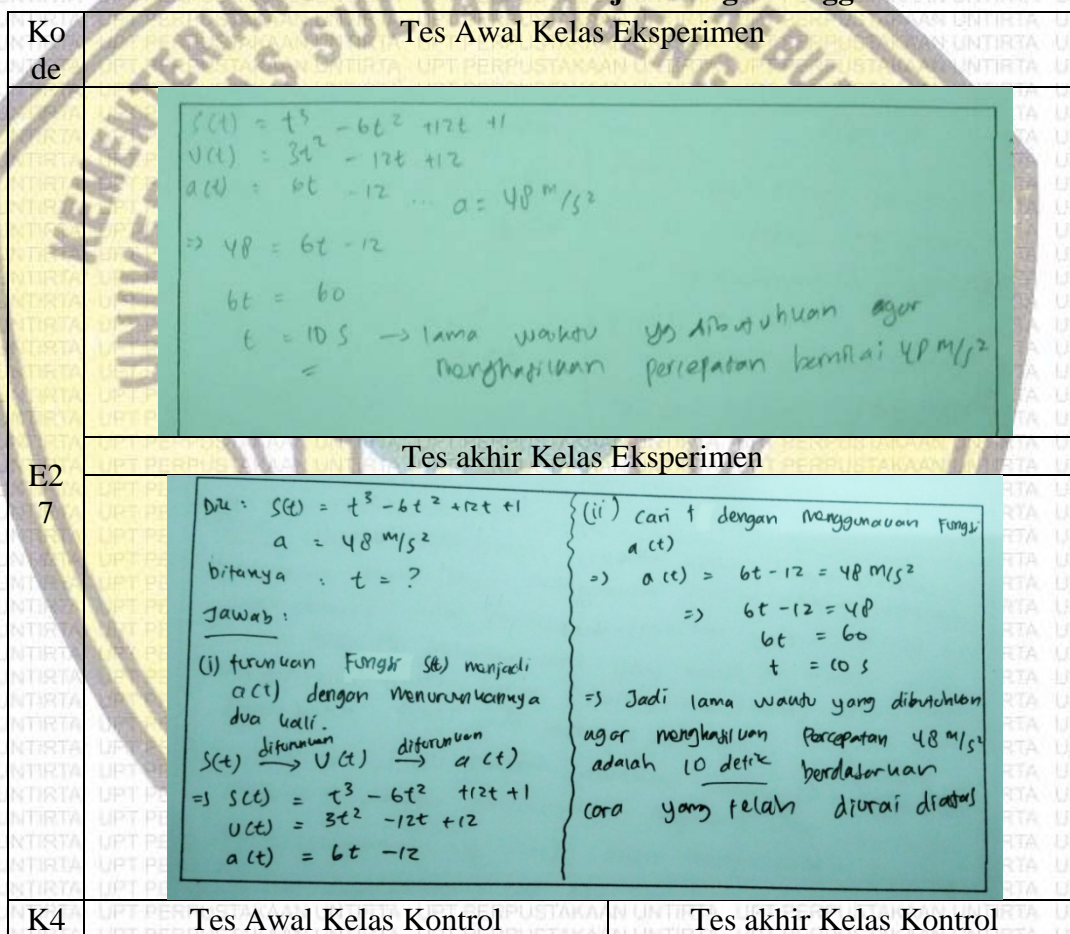 Ko
de
Tes Awal Kelas Eksperimen
S(t) = t³ - 6t² +12t +1
V(t) = 3t² - 12t +12
a(t) = 6t - 12 ... a = 48 m/s²
=> 48 = 6t - 12
6t = 60
t = 10 s → lama waktu yg dibutuhkan agar
menghasilkan percepatan bernilai 48 m/s²
E2
7
Tes akhir Kelas Eksperimen
Dik : S(t) = t³ - 6t² +12t +1
a = 48 m/s²
Ditanya : t = ?
Jawab :
(i) turunkan Fungsi S(t) menjadi
a(t) dengan menurunkannya
dua kali.
S(t) diturunkan → V(t) diturunkan → a(t)
=> S(t) = t³ - 6t² +12t +1
V(t) = 3t² - 12t +12
a(t) = 6t - 12
(ii) cari t dengan menggunakan Fungsi
a(t)
=> a(t) = 6t - 12 = 48 m/s²
=> 6t - 12 = 48
6t = 60
t = 10 s
=> Jadi lama waktu yang dibutuhkan
agar menghasilkan Percepatan 48 m/s²
adalah 10 detik berdasarkan
cara yang telah diurai diatas
K4
Tes Awal Kelas Kontrol
Tes akhir Kelas Kontrol